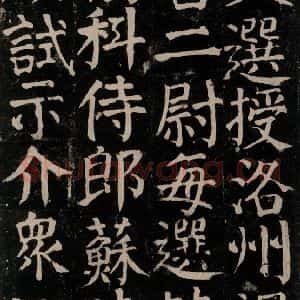 選授洛州
二尉每選
科侍郎蘇
試示介衆